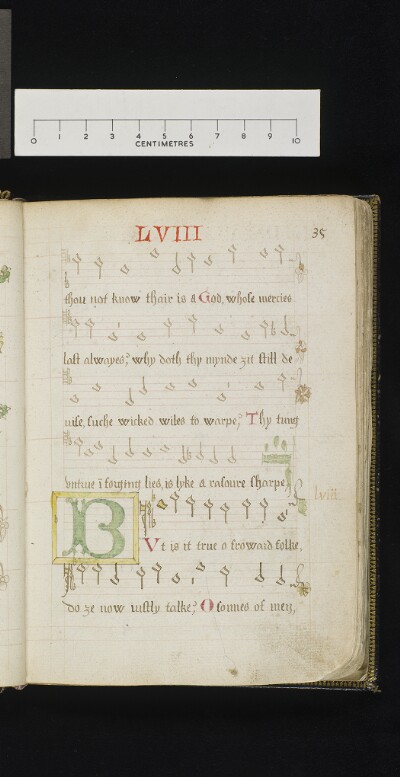 0 1 2 3 4 5 6 7 8 9 10
CENTIMETRES
LVIII
35
thou not know thair is a God, whose mercies
last alwayes? why doth thy mynde zit still de
uise, suche wicked wiles to warpe? Thy tung
vntrue ī forging lies, is lyke a rasoure sharpe.
lviii.
BVt is it true o froward folke,
do ze now iustly talke? O sonnes of men,